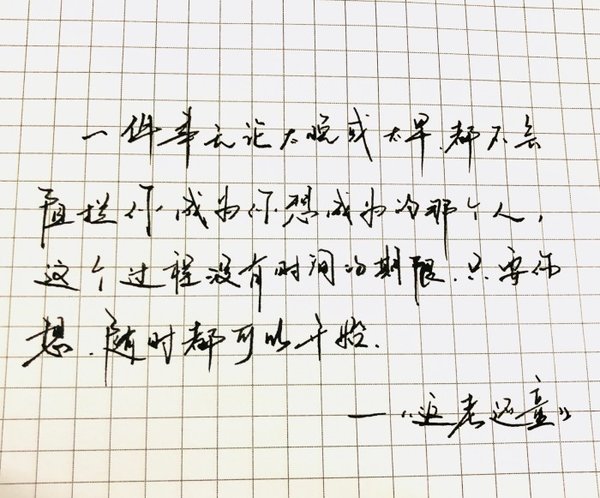 一件事无论太晚或太早,都不会
阻拦你成为你想成为的那个人,
这个过程没有时间的期限.只要你
想.随时都可以开始.
——《返老还童》